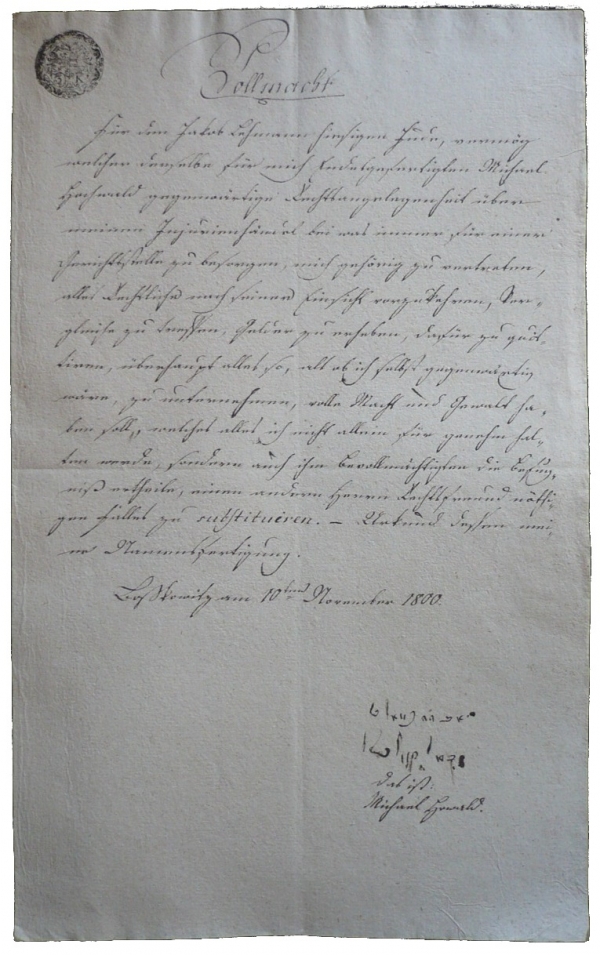 Vollmacht
Für den Jakob Lehmann hiesigen Jude, vermög
welcher derselbe für mich Endesgefertigten Michael
Hochwald gegenwärtige Rechtsangelegenheit über
meinen Injurienhändel bei was immer für einer
Gerichtsstelle zu besorgen, mich gehörig zu vertreten,
alles Rechtliche nach seiner Einsicht vorzukehren, Ver-
gleiche zu treffen, Gelder zu erheben, dafür zu quit-
tiren, überhaupt alles so, als ob ich selbst gegenwärtig
wäre, zu unternehmen, volle Macht und Gewalt ha-
ben soll, welches alles ich nicht allein für genehm hal-
ten werde, sondern auch ihm Bevollmächtigten die Befug-
niß ertheile, einen andern Herrn Rechtsfreund nöthi-
gen Falles zu substituiren. – Urkund dessen mei-
ne Namensfertigung.
Boskowitz am 10ten November 1800.
das ist:
Michael Howald.